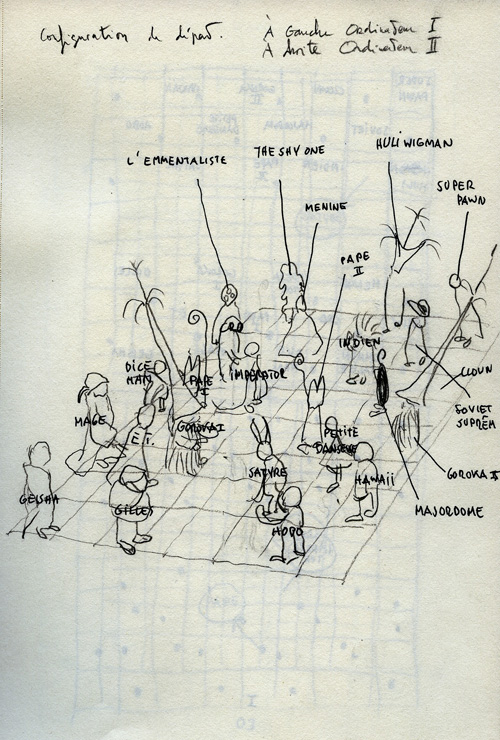 Configuration de départ. À Gauche Ordinateur I
A droite Ordinateur II
L'EMMENTALISTE
THE SHY ONE
HULI WIGMAN
SUPER
PAWN
MENINE
PAPE
II
INDIEN
DICE
MAN
PAPE
I
IMPERATOR
CLOUN
SOVIET
SUPRÊM
MAGE
E.T.
GOROKA I
PETITE
DANSEUSE
SATYRE
HAWAII
GOROKA II
GEISHA
GILLES
MAJORDOME
HOPO